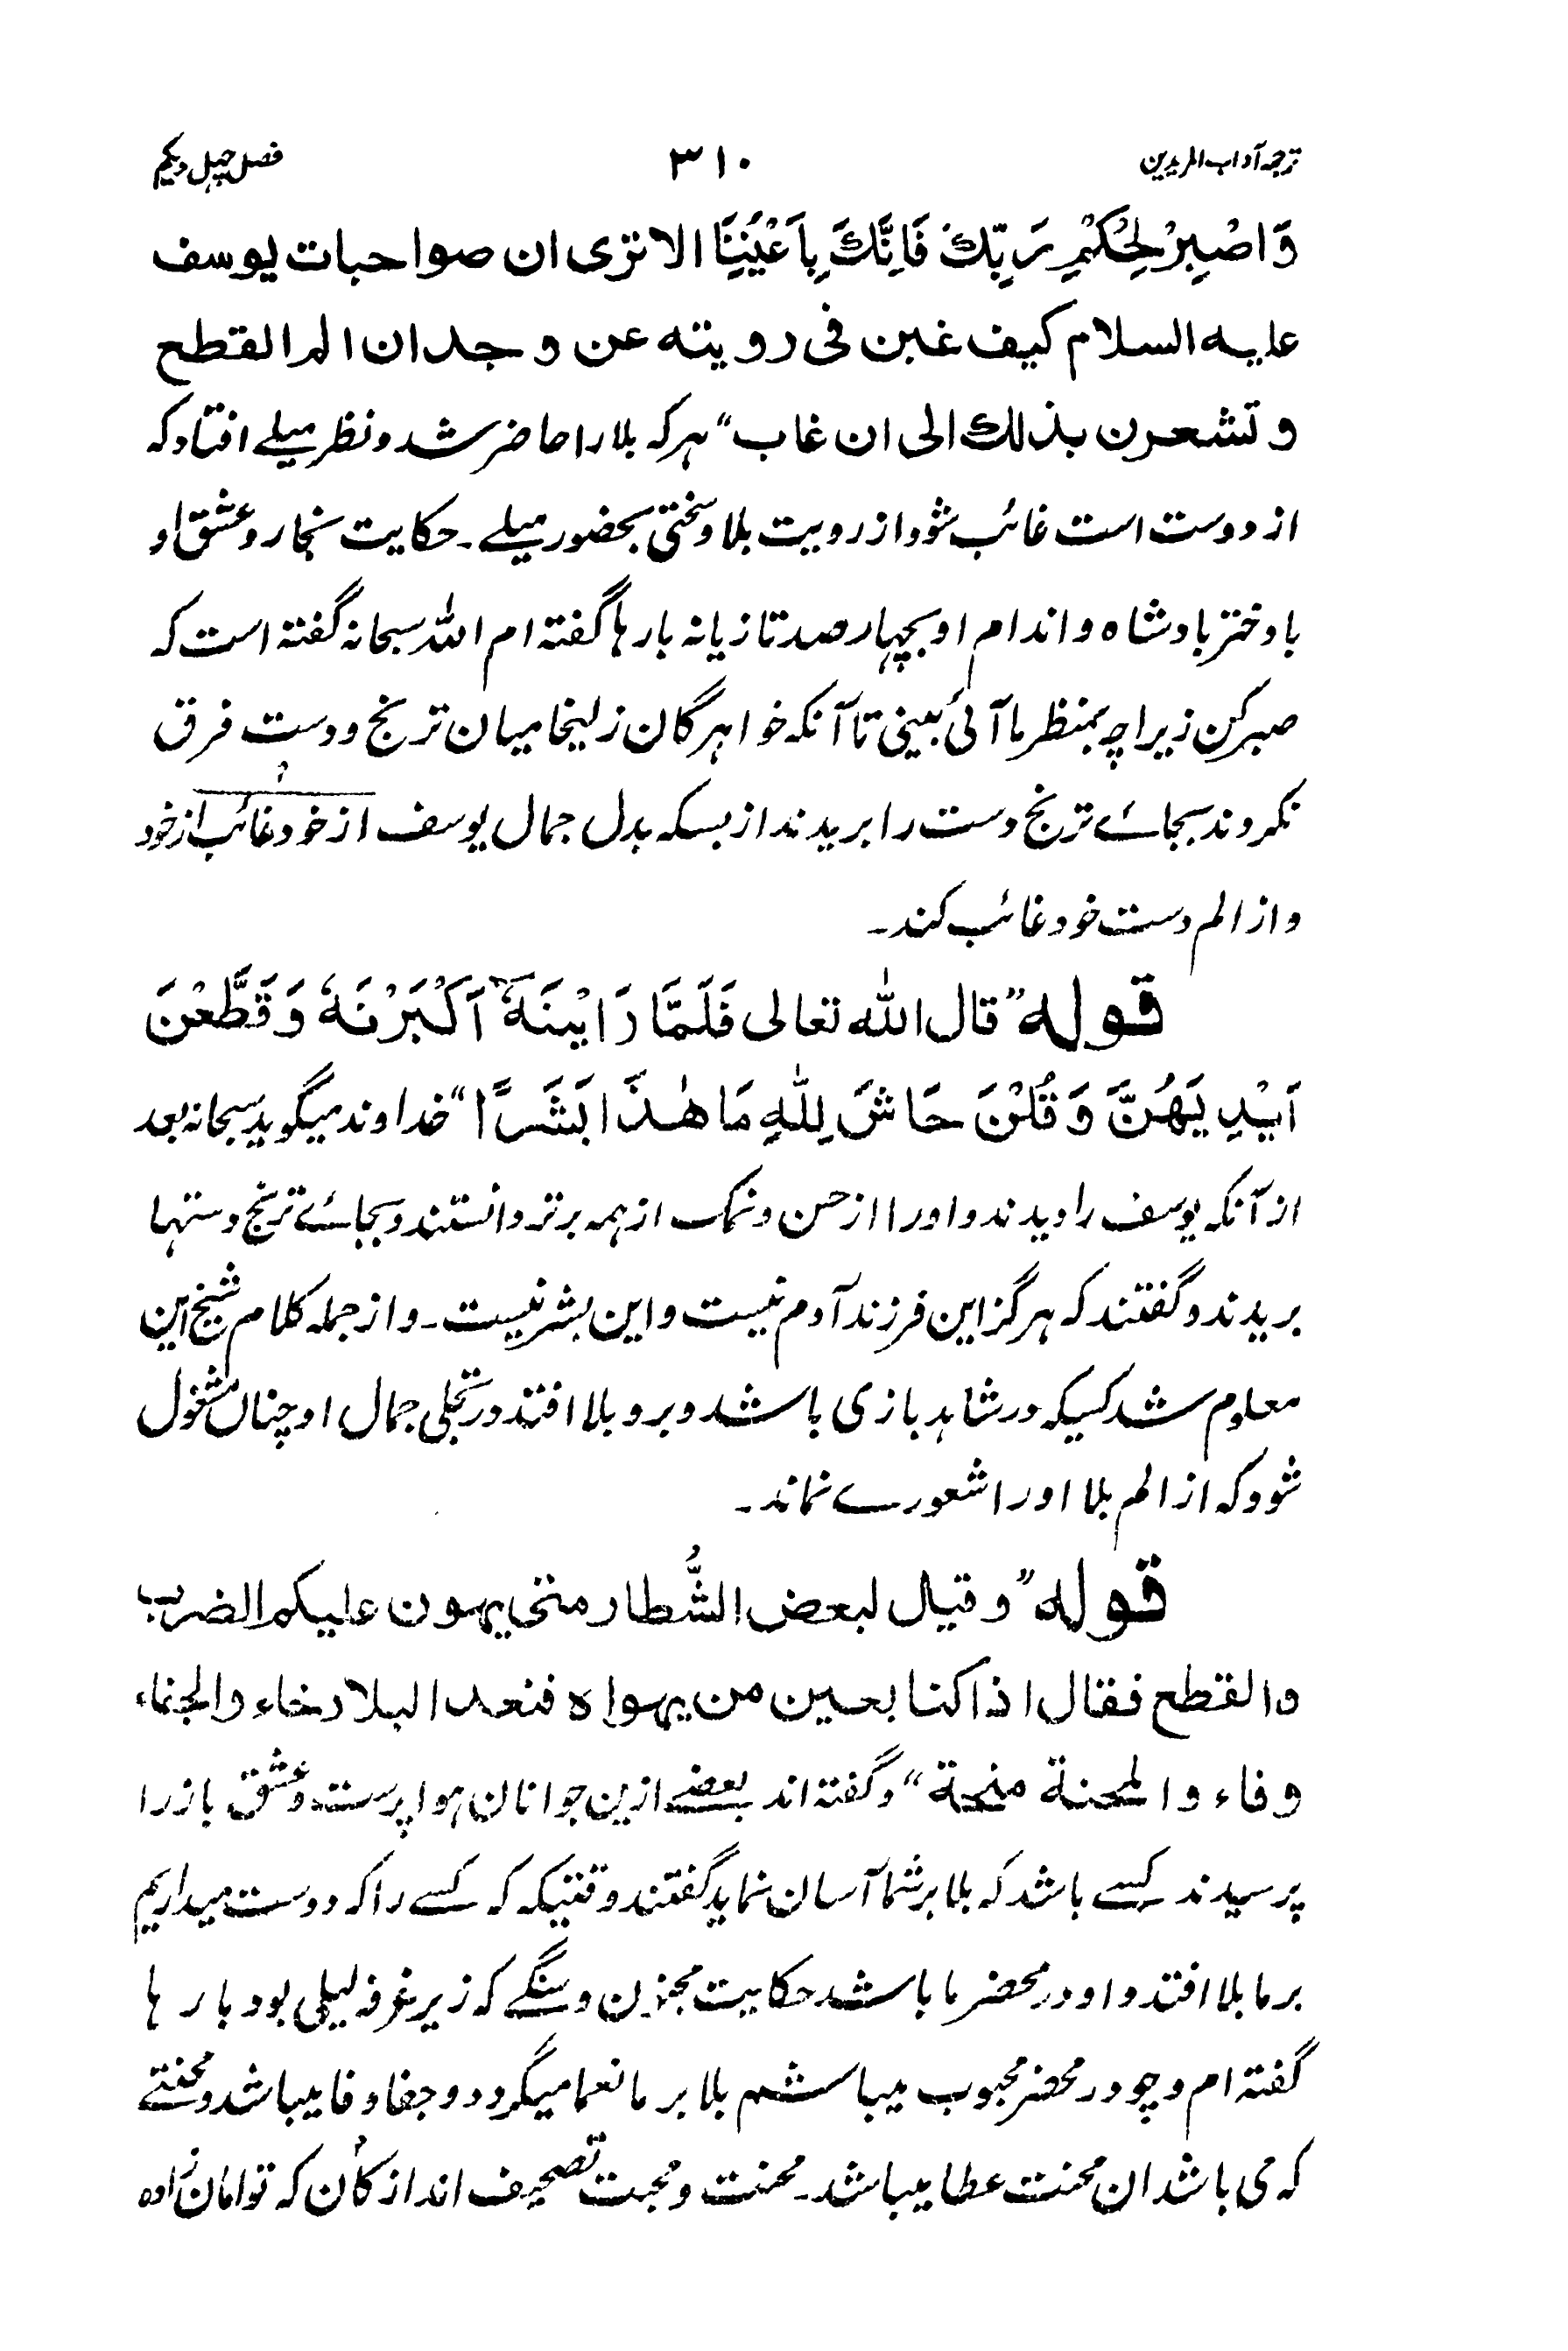 ترجمه آداب المریدین ۳۱۰ فصل چہل ویکم
وَاصْبِرْ لِحُكْمِ رَبِّكَ فَاِنَّكَ بِاَعْيُنِنَا الا ترى ان صواحبات يوسف
عليه السلام كيف غبن فى رويته عن وجدان الم القطع
وتشعرن بذلك الى ان غاب" ہر کہ بلا را حاضر شد و نظر میلے افتاد کہ
از دوست است غائب شود از رویت بلا و سختی بحضور میلے۔ حکایت نجار و عشق او
با دختر بادشاہ و اندام او بچہار صد تازیانہ بارہا گفتہ ام اللہ سبحانہ گفتہ است کہ
صبر کن زیراچہ بمنظر ما آئی نبینی تا آنکہ خواہرگان زلیخا میان ترنج و دست فرق
نکردند بجائے ترنج دست را بریدند از بسکہ بدل جمال یوسف از خود غائب از خود
و از الم دست خود غائب کند۔
قوله" قال الله تعالى فَلَمَّا رَاَيْنَهٗۤ اَكْبَرْنَهٗ وَقَطَّعْنَ
اَيْدِيَهُنَّ وَقُلْنَ حَاشَ لِلّٰهِ مَا هٰذَا بَشَرًا" خداوند میگوید سبحانہ بعد
از آنکہ یوسف را دیدند و اورا از حسن و نمک از ہمہ برتر دانستند و بجائے ترنج دستہا
بریدند و گفتند کہ ہرگز این فرزند آدم نیست و این بشر نیست۔ و از جملہ کلام شیخ این
معلوم شد کسیکہ در شاہد بازی باشد و برو بلا افتد در تجلی جمال او چناں مشغول
شود کہ از الم بلا اورا شعورے نماند۔
قوله" وقيل لبعض الشُّطار متى يهون عليكم الضرب
والقطع فقال اذا كنا بعين من يهواه فنعد البلا رخاء والجفاء
وفاء والمحنة منحة" و گفتہ اند بعضے ازین جوانان ہوا پرست و عشق باز را
پرسیدند کسے باشد کہ بلا بر شما آسان نماید گفتند وقتیکہ کہ کسے را کہ دوست میداریم
بر ما بلا افتد و او در محضر ما باشد حکایت مجنون و سنگے کہ زیر غرفہ لیلی بود بارہا
گفتہ ام و چو در محضر محبوب میباشم بلا بر ما نعما میگردد و جفا وفا میباشد و محنتے
کہ می باشد ان محنت عطا میباشد۔ محنت و محبت تصحیف اند از کان کہ توامان زادہ